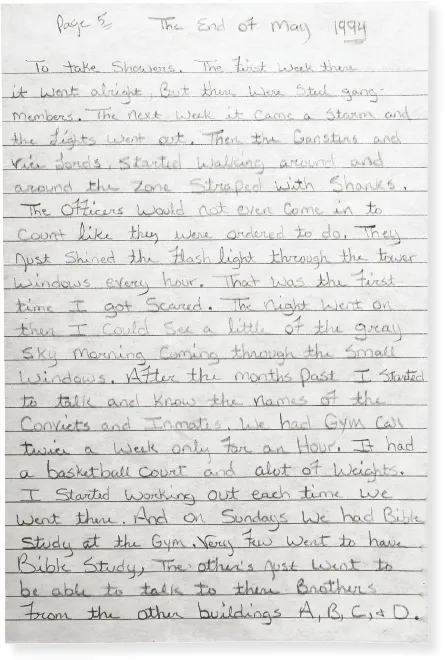 Page 5 The End of May 1994
To take Showers. The First Week there
it Went alright, But there Were Steel gang-
members. The next Week it Came a Storm and
the Lights Went out. Then the Gansters and
Vice Lords, Started Walking around and
around the Zone Straped With Shanks.
The Officers Would not even Come in to
Count like they were ordered to do. They
just Shined the Flash light through the tower
Windows every hour. That was the First
time I got Scared. The night Went on
then I Could See a little of the gray
Sky morning Coming through the Small
Windows. After the months Past I Started
to talk and Know the names of the
Convicts and Inmates. We had Gym Call
twice a Week only For an Hour. It had
a basketball Court and alot of Weights.
I Started Working out each time we
Went there. And on Sundays We had Bible
Study at the Gym. Very Few Went to have
Bible Study, The other's just Went to
be able to talk to there Brothers
From the other buildings A, B, C, + D.